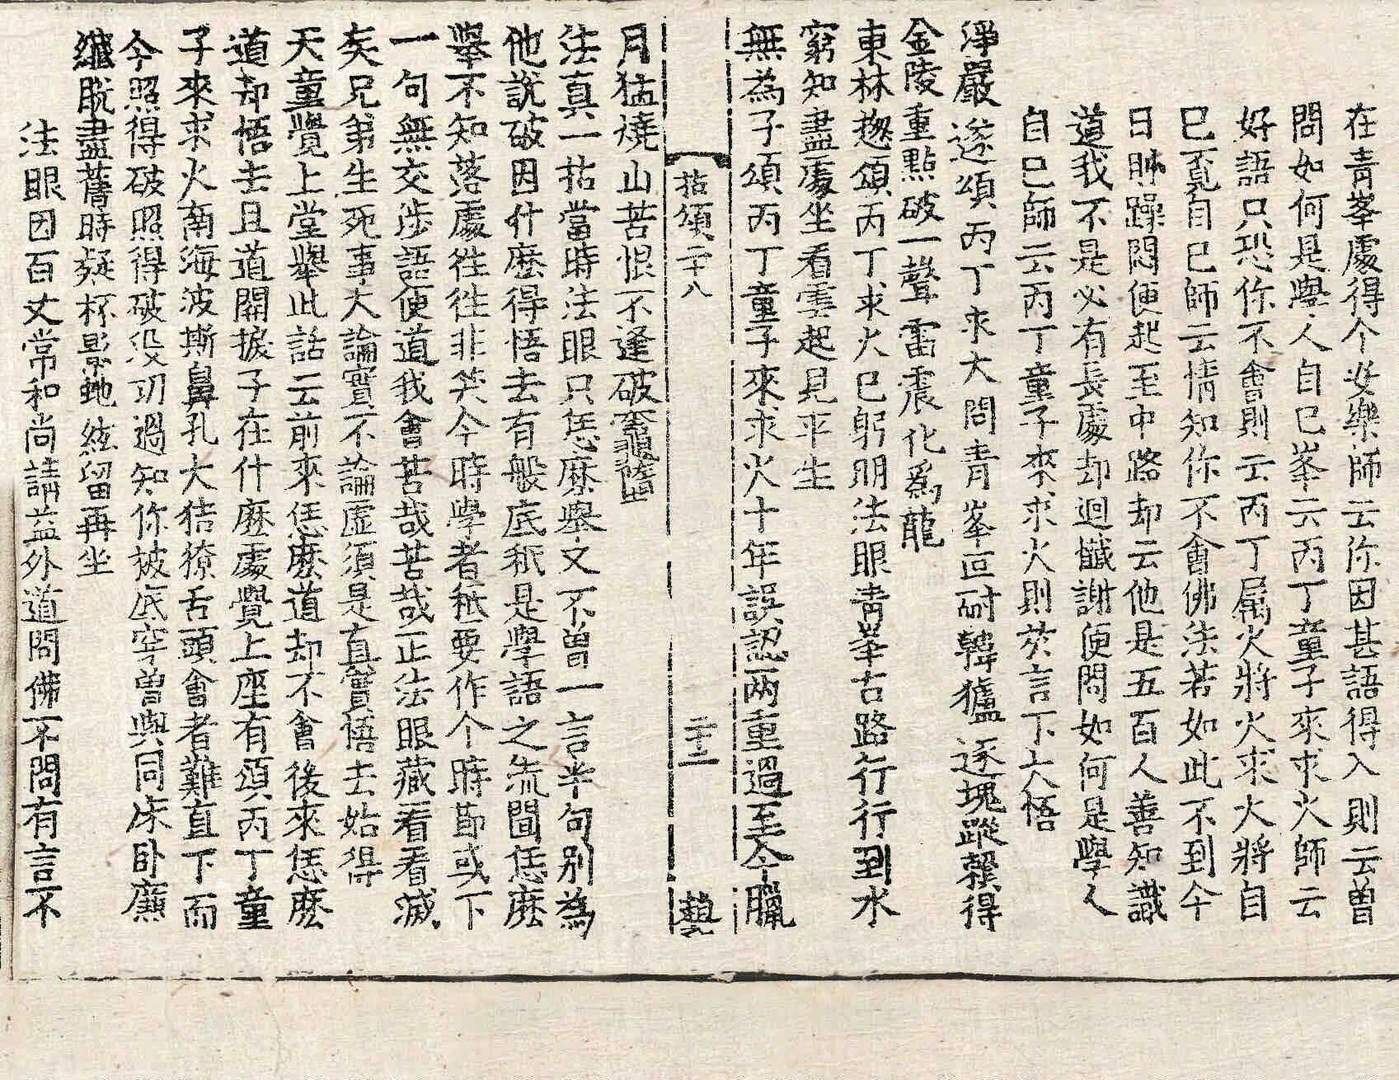 在青峯處得个安樂師云你因甚語得入則云曾
問如何是學人自己峯云丙丁童子來求火師云
好語只恐你不會則云丙丁属火將火求火將自
己覔自己師云情知你不會佛法若如此不到今
日則躁悶便起至中路却云他是五百人善知識
道我不是必有長處却迴懺謝便問如何是學人
自己師云丙丁童子來求火則於言下大悟
淨嚴遂頌丙丁求火問青峯叵耐韓獹逐塊蹤賴得
金陵重點破一聲雷震化爲龍
東林揔頌丙丁求火已躬明法眼青峯古路行行到水
窮知盡處坐看雲起見平生
無為子頌丙丁童子來求火十年誤認兩重過至今臘
拈頌二十八 二十二 趙
月猛燒山苦恨不逢破竈墮
法真一拈當時法眼只恁麽舉又不曽一言半句別為
他說破因什麽得悟去有般底秖是學語之流聞恁麽
舉不知落處徃徃非笑今時學者秖要作个時節或下
一句無交涉語便道我會苦哉苦哉正法眼藏看看滅
矣兄弟生死事大論實不論虛須是真實悟去始得
天童覺上堂舉此話云前來恁麽道却不會後來恁麽
道却悟去且道開捩子在什麽處覺上座有頌丙丁童
子來求火南海波斯鼻孔大秸獠舌頭會者難直下而
今照得破照得破没功過知你被底穿曽與同床卧廉
纖脫盡舊時疑杯影虵絃留再坐
法眼因百丈常和尚請益外道問佛不問有言不